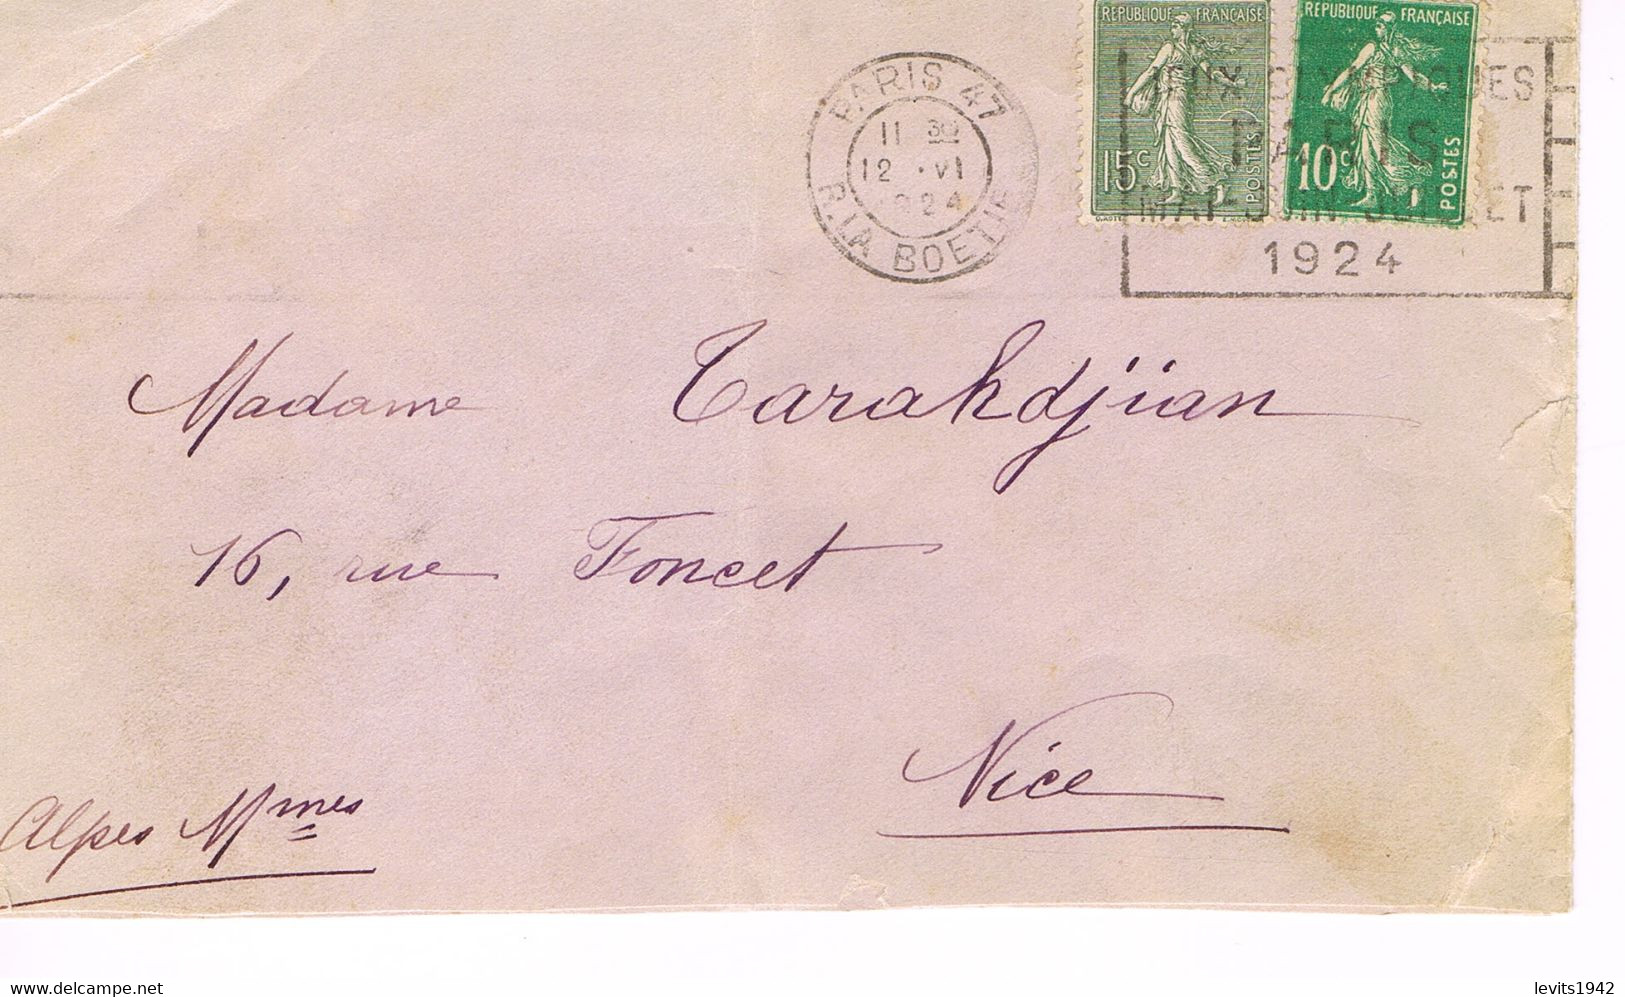 REPUBLIQUE FRANÇAISE
REPUBLIQUE FRANÇAISE
15c POSTES
10c POSTES
PARIS 47
11 30
12 · VI
1924
R. LA BOETIE
JEUX OLYMPIQUES
PARIS
MAI-JUIN-JUILLET
1924
Madame Tarahdjian
16, rue Foncet
Nice
Alpes Mmes
www.delcampe.net
levits1942